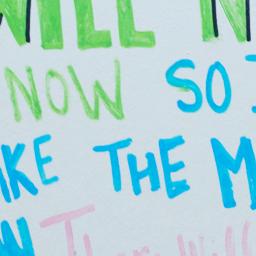 WILL N
NOW SO I
KE THE M
N There Will